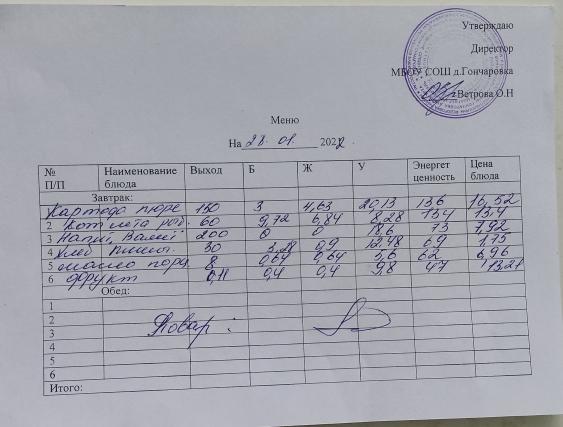 Утверждаю
Директор
МБОУ СОШ д.Гончаровка
Ветрова О.Н
Меню
На 28. 01. 2022
№ П/П Наименование блюда Выход Б Ж У Энергет ценность Цена блюда
Завтрак:
Картофо пюре 150 3 4,63 20,13 136 16,52
2 Котлета рыб. 60 9,72 6,84 8,28 134 13,4
3 200 0 0 18,6 73 1,92
4 Хлеб пшен. 30 3,28 0,9 12,48 69 1,75
5 масло порц. 8 0,64 0,64 5,6 62 6,96
6 фрукт 0,11 0,4 0,4 9,8 47 13,21
Обед:
1
2
3
4
5
6
Повар:
Итого: